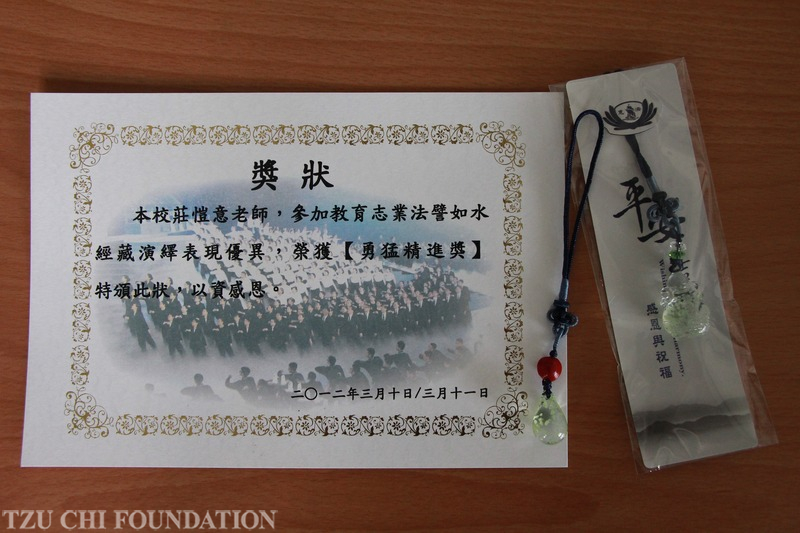 獎狀
本校莊愷意老師，參加教育志業法譬如水
經藏演繹表現優異，榮獲【勇猛精進獎】
特頒此狀，以資感恩。
二〇一二年三月十日/三月十一日
平安
感恩與祝福
TZU CHI FOUNDATION